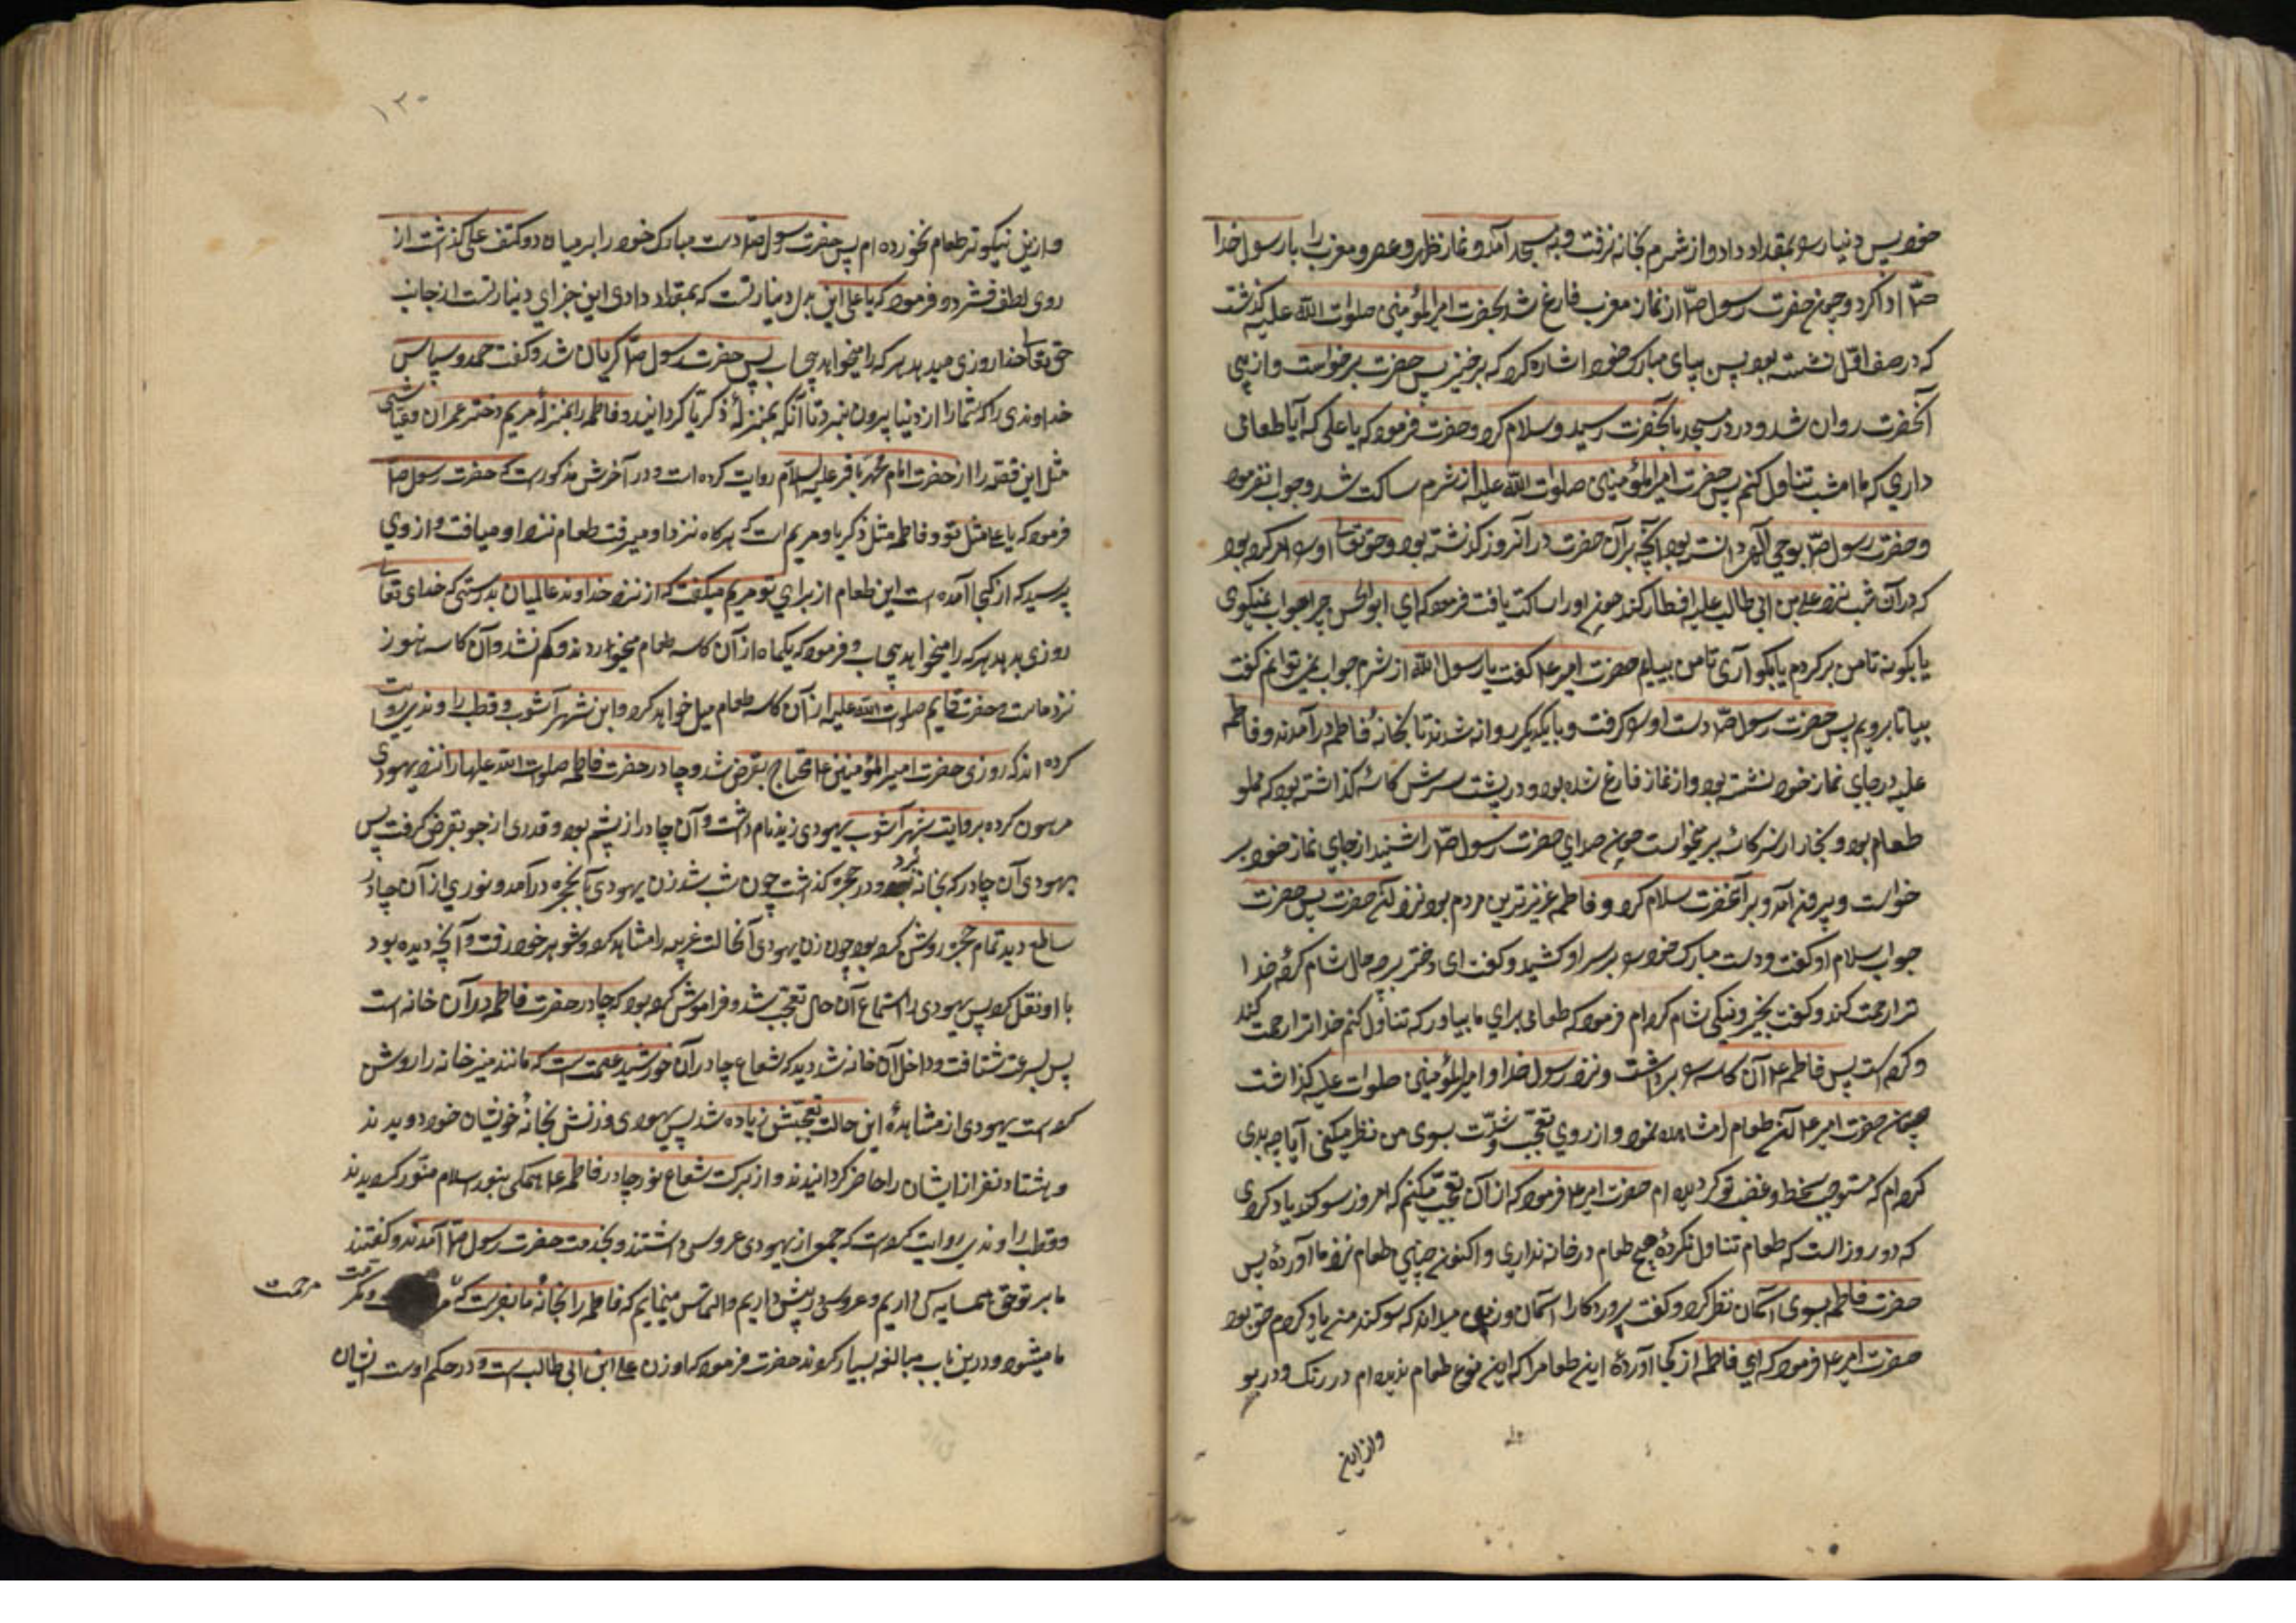 خود پس دینار را بمقداد داد و از شرم بخانه نرفت و بمسجد آمد و نماز ظهر و عصر و مغرب را با رسول خدا
صۤ ادا کرد و چون حضرت رسول صۤ از نماز مغرب فارغ شد بحضرت امیرالمؤمنین صلوات الله علیه گذشت
که در صف اوّل نشسته بود پس بپای مبارک خود اشاره کرد که برخیز پس حضرت برخواست و از پی
آنحضرت روان شد و در در مسجد بآنحضرت رسید و سلام کرد و حضرت فرمود که یا علی که آیا طعامی
داری که ما امشب تناول کنیم پس حضرت امیرالمؤمنین صلوات الله علیه از شرم ساکت شد و جواب نفرمود
و حضرت رسول صۤ بوحی الهی دانسته بود آنچه بر آن حضرت در آنروز گذشته بود و حق تعالی او را امر کرده بود
که در آن شب نزد علی بن ابی طالب علیه افطار کند چون او را ساکت یافت فرمود که ای ابوالحسن چرا جواب نمیگوی
یا بگو نه تا من برگردم یا بگو آری تا من بیایم حضرت امیر ع گفت یا رسول الله از شرم جواب نمی توانم گفت
بیا تا برویم پس حضرت رسول صۤ دست او را گرفت و با یکدیگر روانه شدند تا بخانهٔ فاطمه درآمدند و فاطمه
علیه در جای نماز خود نشسته بود و از نماز فارغ شده بود و در پشت سرش کاسهٔ گذاشته بود که مملو
طعام بود و بخار از سر کاسه برمیخواست چون صدای حضرت رسول صۤ را شنید از جای نماز خود بر
خواست و بیرون آمد و بر آنحضرت سلام کرد و فاطمه عزیزترین مردم بود نزد آنحضرت پس حضرت
جواب سلام او گفت و دست مبارک خود را بر سر او کشید و گفت ای دختر بر چه حال شام کردهٔ خدا
ترا رحمت کند و گفت بخیر و نیکی شام کرده ام فرمود که طعامی برای ما بیاور که تناول کنیم خدا ترا رحمت کند
و کرده است پس فاطمه ع آن کاسه را برداشت و نزد رسول خدا و امیرالمؤمنین صلوات علیه گذاشت
چون حضرت امیر ع آن طعام را مشاهده نمود و از روی تعجّب و شدّت بسوی من نظر میکنی آیا چه بدی
کرده ام که مستوجب سخط و غضب تو گردیده ام حضرت امیر ع فرمود که از آن تعجّب میکنم که امروز سوگند یاد کردی
که دو روز است که طعام تناول نکردهٔ و هیچ طعام در خانه نداری و اکنون چنین طعام نزد ما آوردهٔ پس
حضرت فاطمه بسوی آسمان نظر کرد و گفت پروردگارا آسمان و زمین میداند که سوگند من یاد کرده ام حق بود
حضرت امیر ع فرمود که ای فاطمه از کجا آوردهٔ این طعام را که این نوع طعام ندیده ام در رنگ و در بو
و از این
۱۳۰
و ازین نیکوتر طعام نخورده ام پس حضرت رسول صۤ دست مبارک خود را بر میان دو کتف علی گذاشت از
روی لطف فشرد و فرمود که یا علی این بدل دینار تست که بمقداد دادی این جزای دینار تست از جانب
حق تعالی خدا روزی میدهد هر که را میخواهد بی حساب پس حضرت رسول صۤ گریان شد و گفت حمد و سپاس
خداوندی را که شما را از دنیا بیرون نبرد تا آنکه بمنزلهٔ ذکریا گردانید و فاطمه را بمنزلهٔ مریم دختر عمران و عیاشی
مثل این قصّه را از حضرت امام محمّد باقر علیه السلام روایت کرده است و در آخرش مذکور است که حضرت رسول صۤ
فرمود که یا علی مثل تو و فاطمه مثل ذکریا و مریم است که هرگاه نزد او میرفت طعام نزد او میافت و از وی
پرسید که از کجا آمده است این طعام از برای تو مریم میگفت که از نزد خداوند عالمیان بدرستی که خدای تعالی
روزی بدهد هر که را میخواهد بی حساب و فرمود که یکماه از آن کاسه طعام میخوردند و کم نشد و آن کاسه هنوز
نزد ماست و حضرت قایم صلوات الله علیه از آن کاسه طعام میل خواهد کرد و ابن شهر آشوب و قطب راوندی روایت
کرده اند که روزی حضرت امیرالمؤمنین ع محتاج بقرض شد و چادر حضرت فاطمه صلوات الله علیها را نزد یهودی
مرهون کرده بروایت شهر آشوب یهودی زید نام داشت و آن چادر از پشم بود و قدری از جو بقرض گرفت پس
یهودی آن چادر که بخانه برد و در حجره گذاشت چون شب شد زن یهودی بآن حجره درآمد و نوری از آن چادر
ساطع دید تمام حجره روشن کرده بود چون زن یهودی آنحالت غریبه را مشاهده کرد و شوهر خود رفت و آنچه دیده بود
با او نقل کرد پس یهودی را استماع آن حال تعجّب شد و فراموش کرده بود که چادر حضرت فاطمه در آن خانه است
پس بسرعت شتافت و داخل آن خانه شد دید که شعاع چادر آن خورشید عصمت است که مانند منیر خانه را روشن
کرده است یهودی از مشاهدهٔ این حالت تعجّبش زیاده شد پس یهودی و زنش بخانهٔ خویشان خود دویدند
و هشتاد نفر از ایشان را حاضر گردانیدند و از برکت شعاع نور چادر فاطمه ع همگی بنور اسلام منوّر گردیدند
و قطب راوندی روایت کرده است که جمعی از یهودی عروسی داشتند و بخدمت حضرت رسول صۤ آمدند و گفتند
ما بر تو حق همسایه گی داریم و عروسی در پیش داریم و التماس مینمایم که فاطمه را بخانهٔ ما بفرست که
مرحمت
ما میشود و درین باب مبالغه بسیار کردند حضرت فرمود که او زن علی ابن ابی طالب است و در حکم اوست ایشان